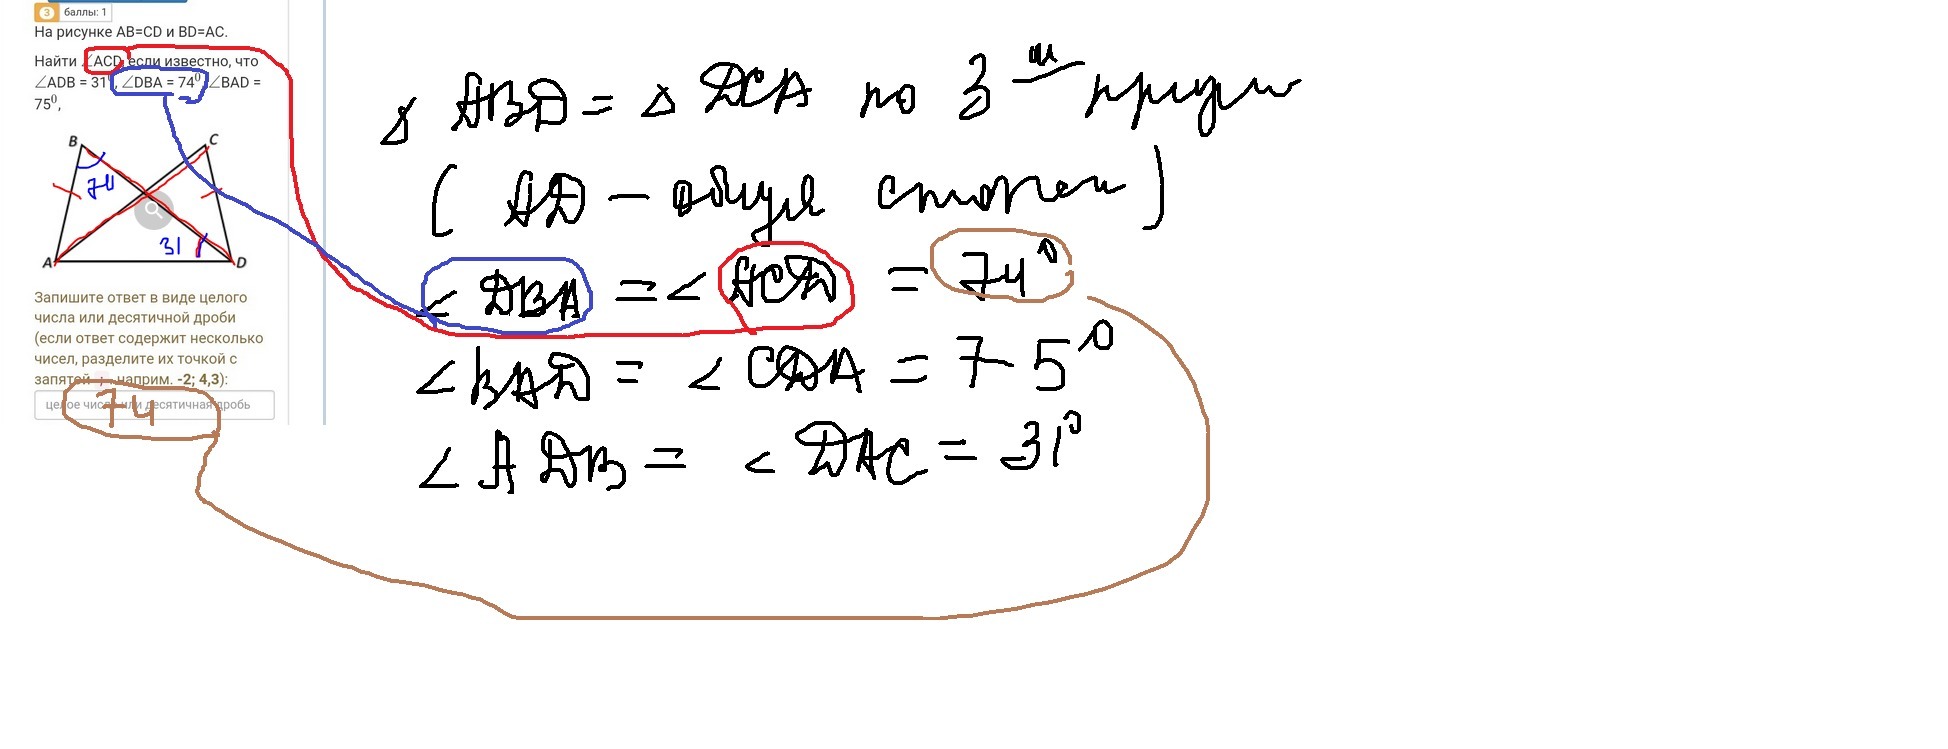 3 баллы: 1
На рисунке AB=CD и BD=AC.
Найти ∠ACD, если известно, что
∠ADB = 31⁰, ∠DBA = 74⁰, ∠BAD =
75⁰,
B
C
74
31
A
D
Запишите ответ в виде целого
числа или десятичной дроби
(если ответ содержит несколько
чисел, разделите их точкой с
запятой ; наприм. -2; 4,3):
целое число или десятичная дробь
74
△ ABD = △ DCA по 3
( AD – общая сторона )
∠ DBA = ∠ ACD = 74⁰
∠ BAD = ∠ CDA = 75⁰
∠ ADB = ∠ DAC = 31⁰